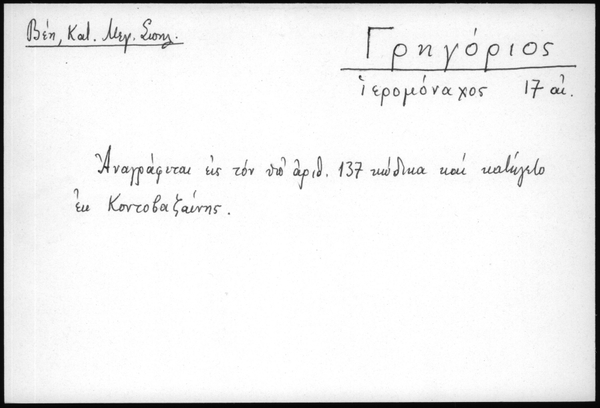 Βέη, Κατ. Μεγ. Σπηλ.
Γρηγόριος
ἱερομόναχος 17 αἰ.
Ἀναγράφεται εἰς τόν ὑπ' ἀριθ. 137 κώδικα καί κατήγετο
ἐκ Κοντοβαζαίνης.